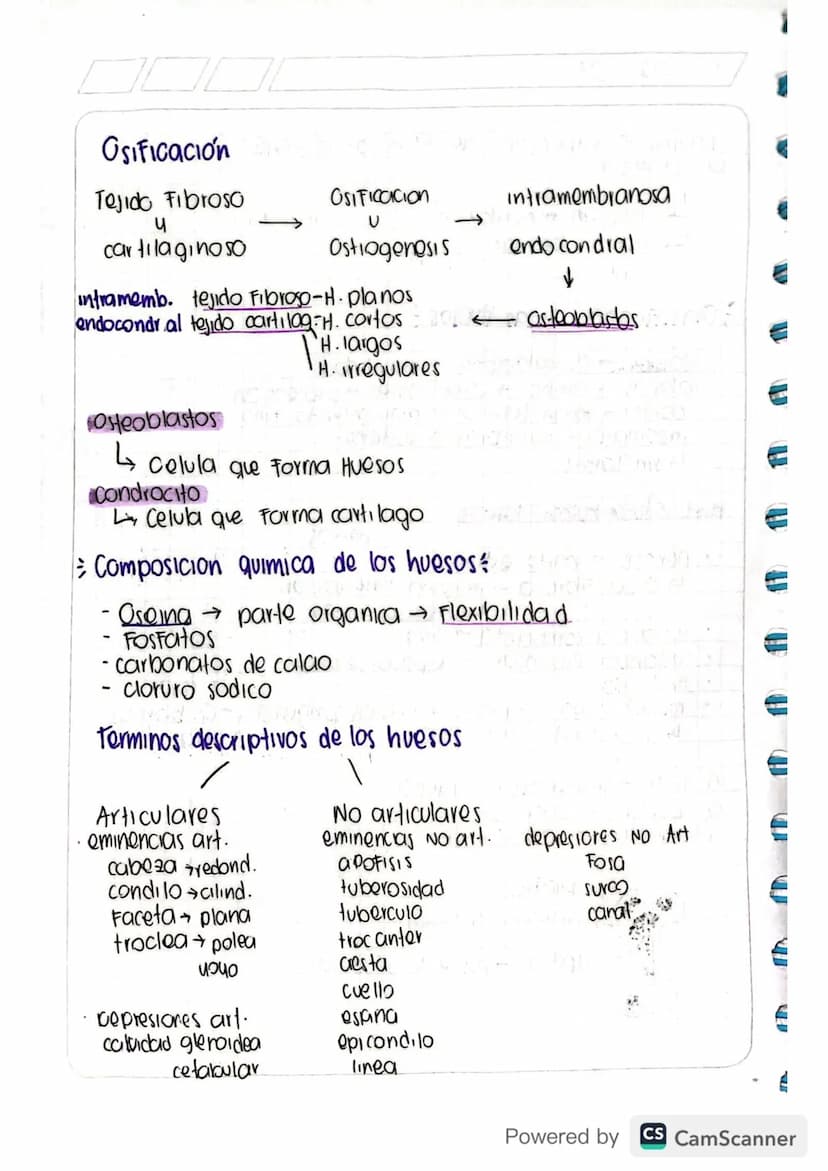 Osificación
Tejido Fibroso
y
cartilaginoso
→
Osificacion
u
Ostiogenosis
→
intramembranosa
endo condral
↓
intramemb. tejido Fibroso-H. planos
endocondral tejido cartilag-H. cortos ← osteoblastos
H. largos
H. irregulares
Osteoblastos
↳ Celula que Forma Huesos
Condrocito
↳ Celula que Forma cartilago
Composicion quimica de los huesos:
- Oseina → parte organica → Flexibilidad
- Fosfatos
- carbonatos de calcio
- cloruro sodico
Terminos descriptivos de los huesos
Articulares
· eminencias art.
cabeza →redond.
condilo →cilind.
Faceta → plana
troclea → polea
yoyo
· Depresiones art.
cavidad gleroidea
cetabular
No articulares
eminencas No art.
apofisis
tuberosidad
tuberculo
trocanter
cresta
cuello
espina
epicondilo
linea
depresiores No Art
Fosa
surco
canal
Powered by CS CamScanner